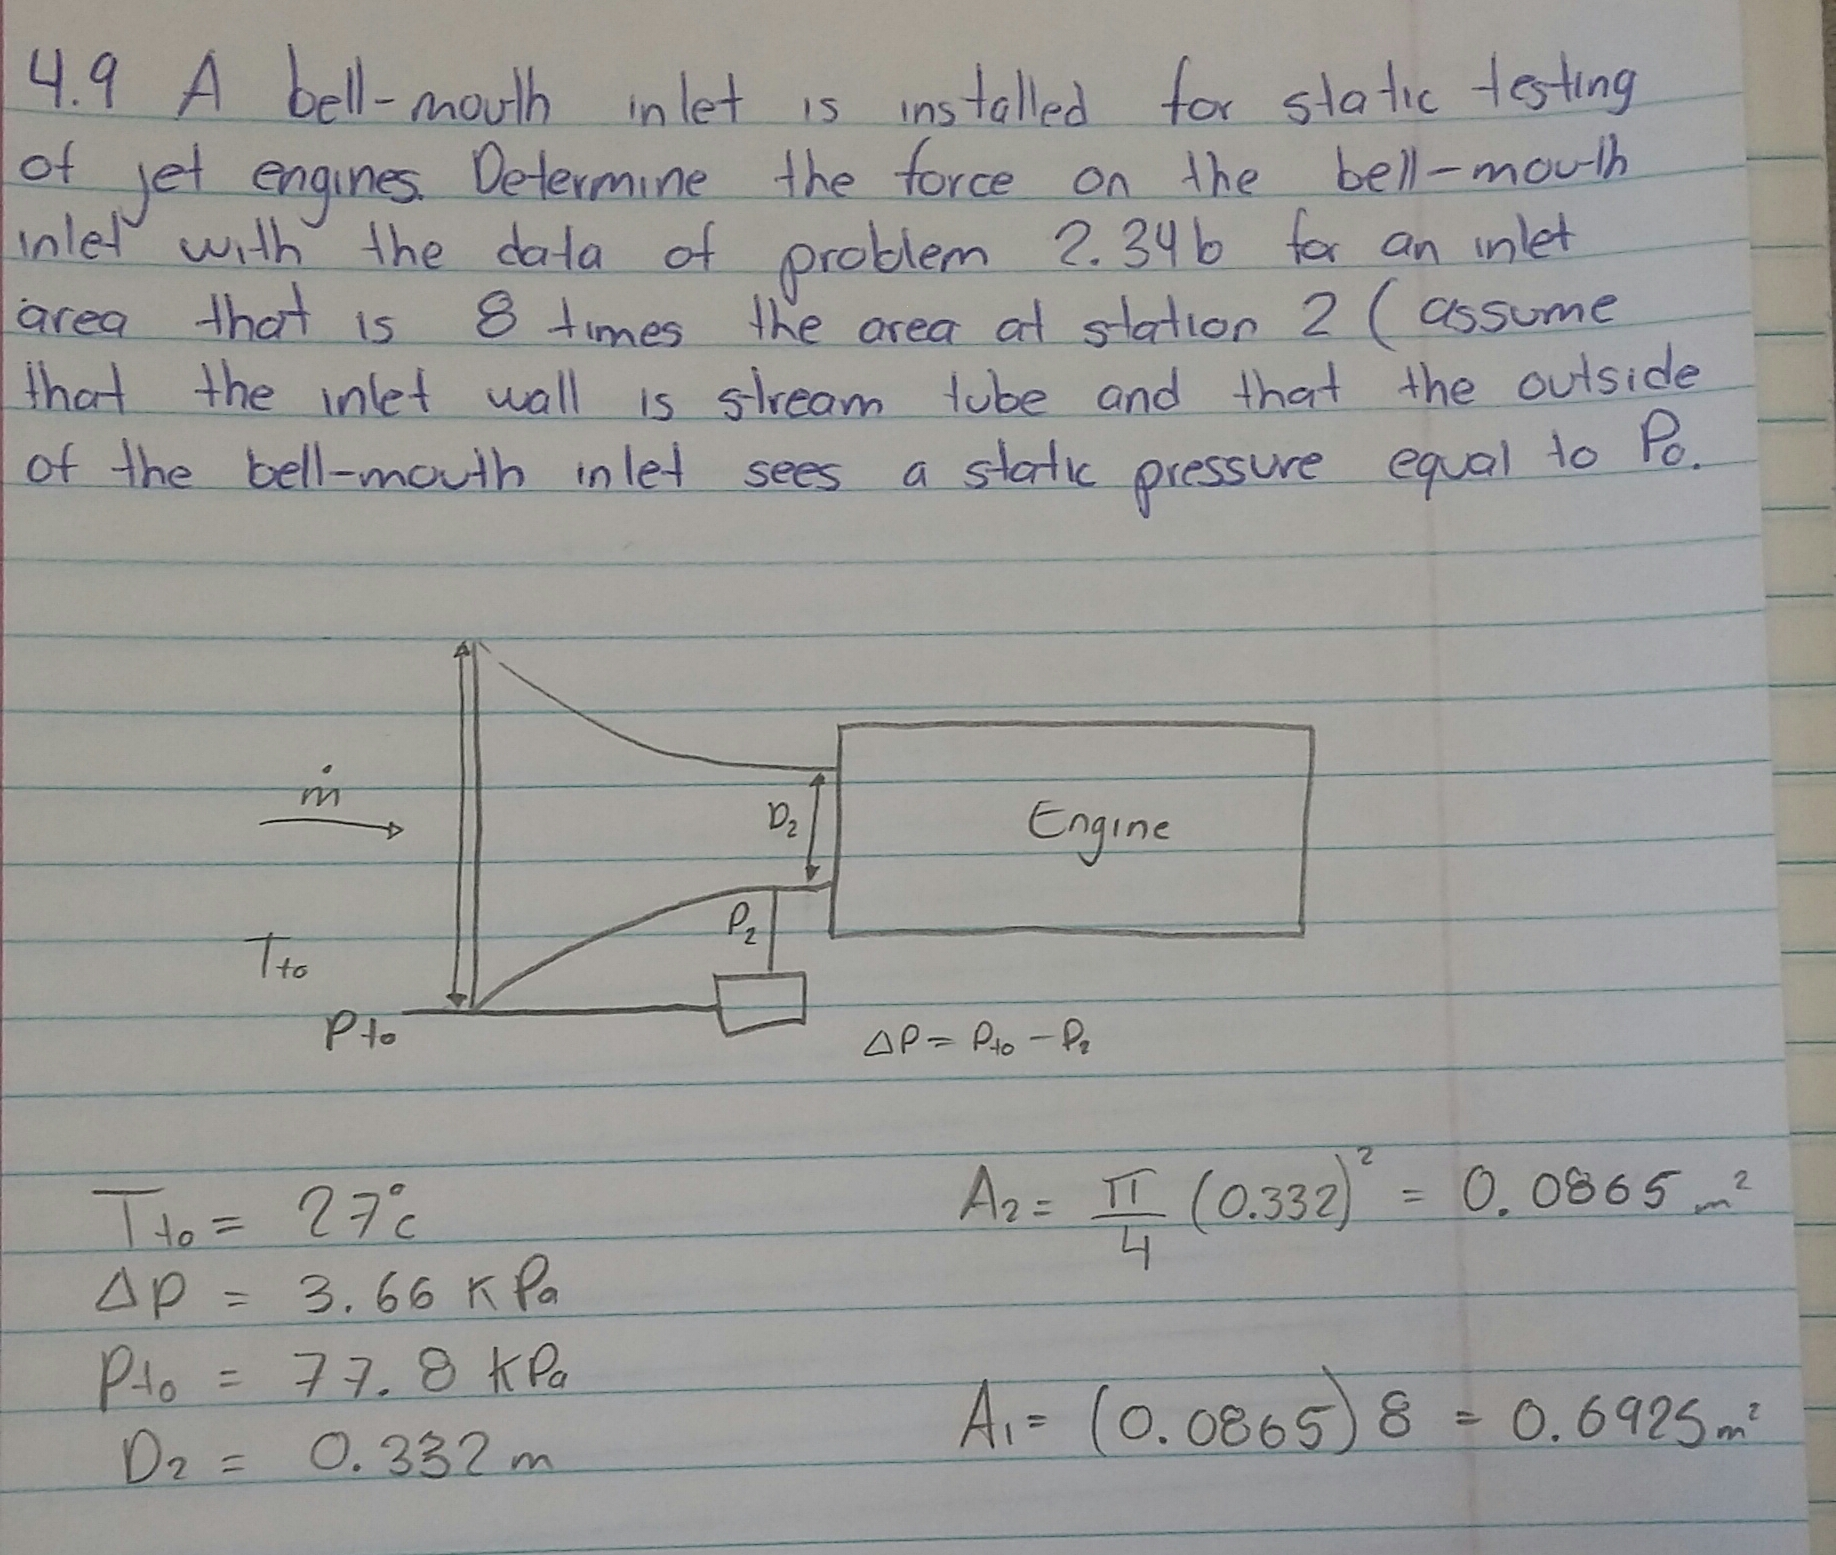 4.9 A bell-mouth inlet is installed for static testing
of jet engines. Determine the force on the bell-mouth
inlet with the data of problem 2.34b for an inlet
area that is 8 times the area at station 2 (assume
that the inlet wall is stream tube and that the outside
of the bell-mouth inlet sees a static pressure equal to P₀.
ṁ
D₂
Engine
P₂
Tₜ₀
Pₜ₀
ΔP = Pₜ₀ - P₂
Tₜ₀ = 27°C
A₂ = π/4 (0.332)² = 0.0865 m²
ΔP = 3.66 KPa
Pₜ₀ = 77.8 KPa
A₁ = (0.0865) 8 = 0.6925 m²
D₂ = 0.332 m